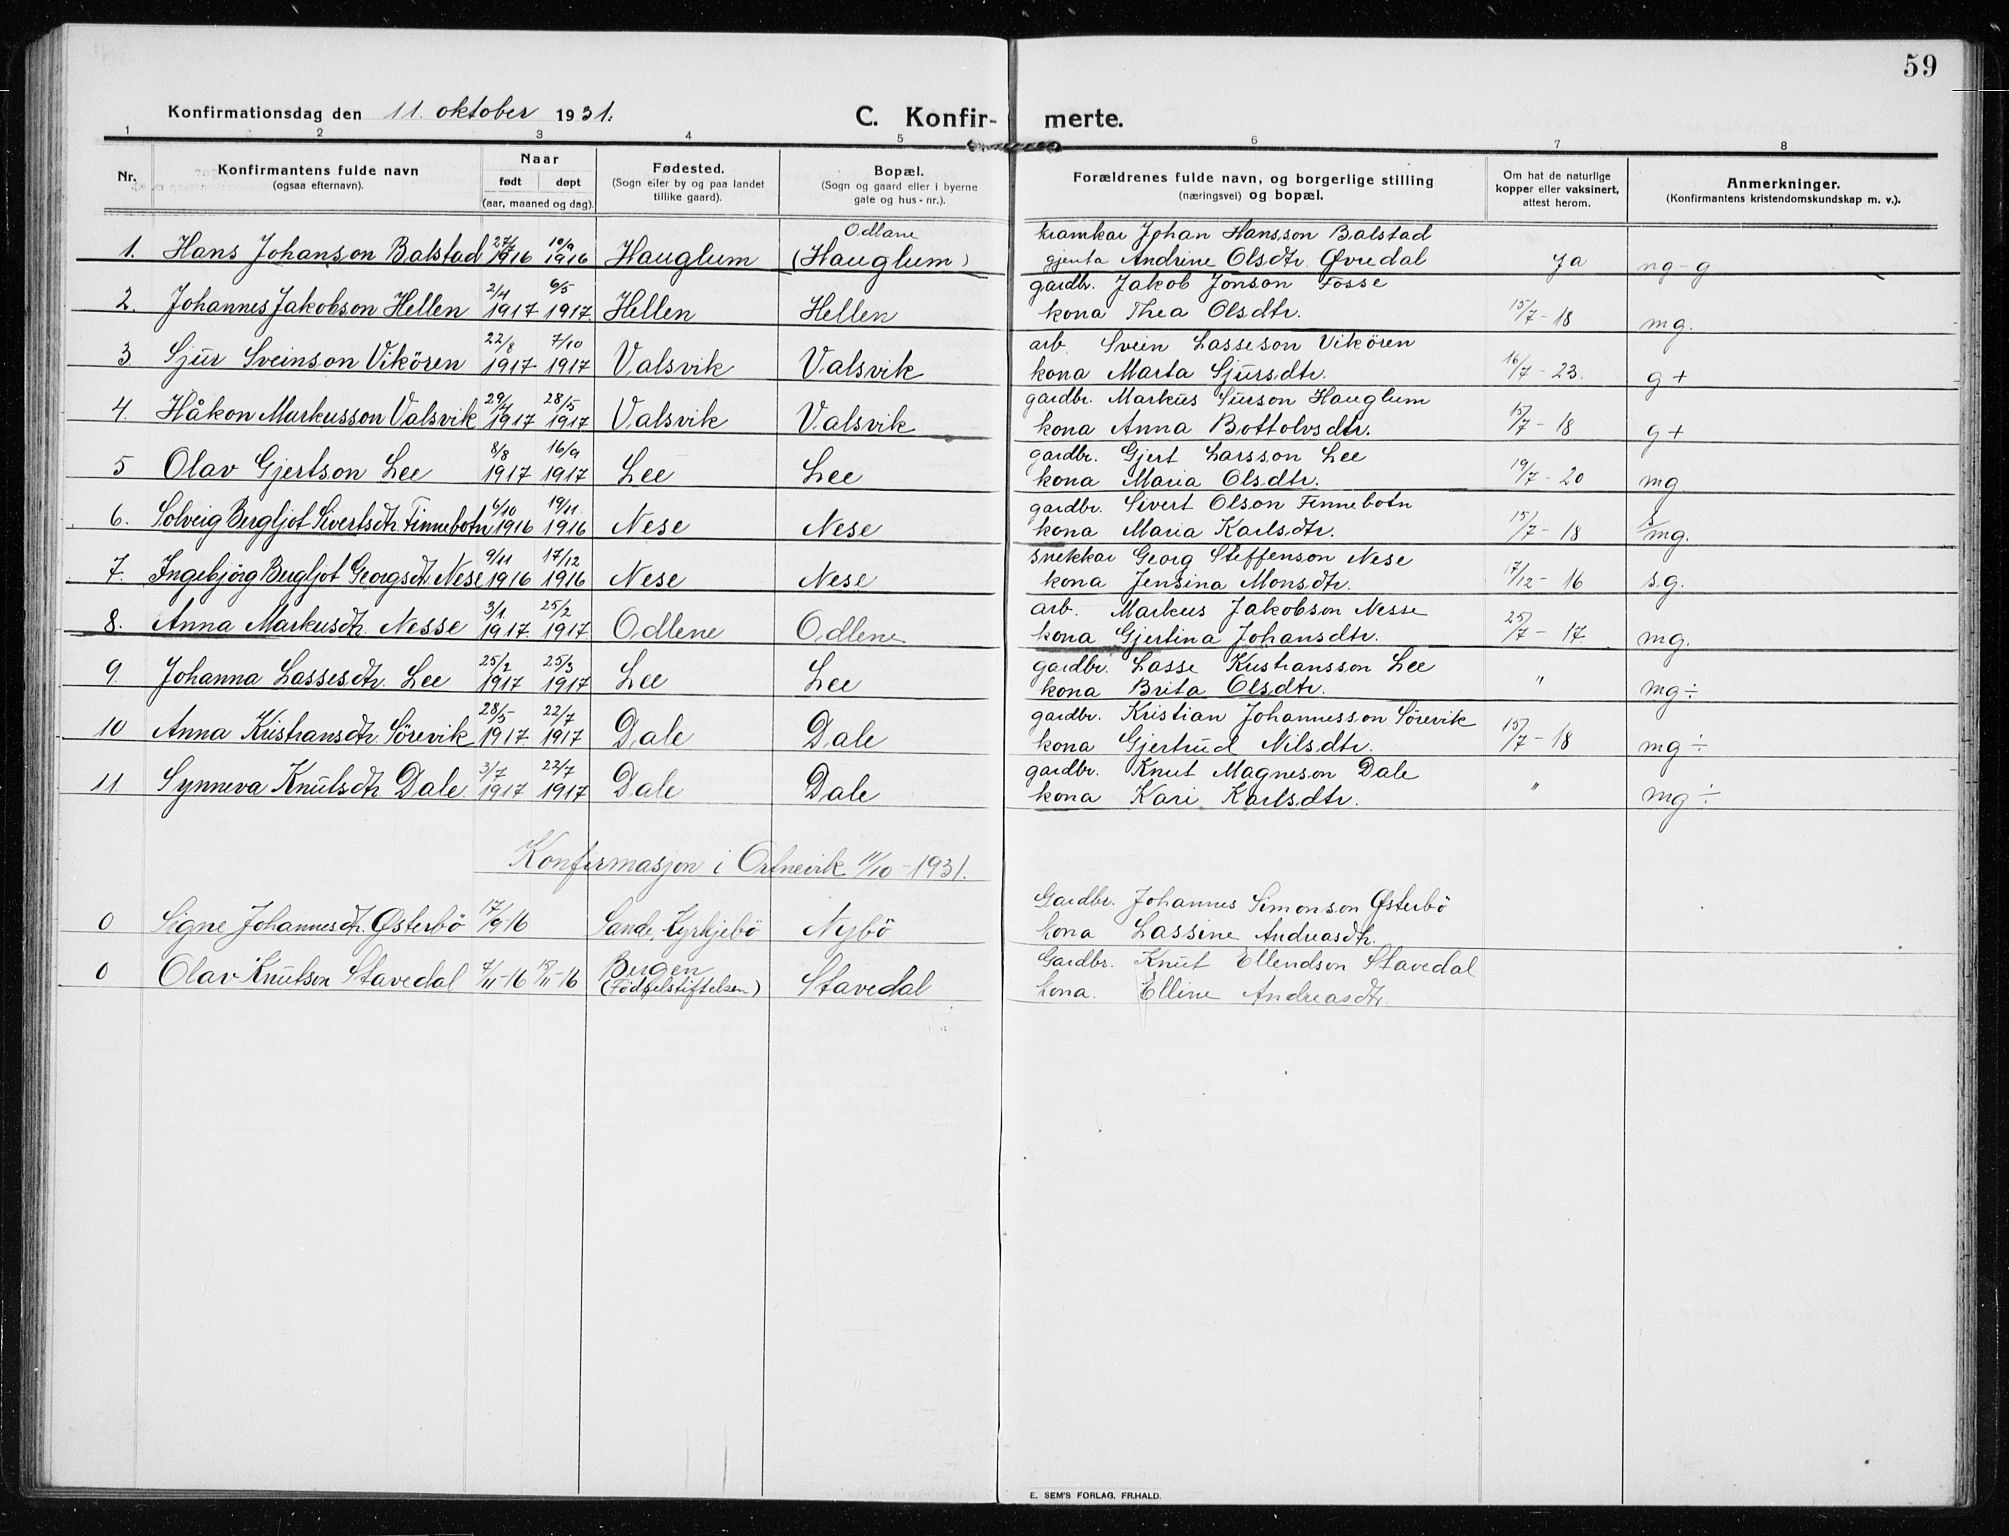 59
Konfirmationsdag den 11. oktober 1931.
C. Konfir- merte.
1 2 3 4 5 6 7 8
Nr. Konfirmantens fulde navn (ogsaa efternavn). Naar født døpt (aar, maaned og dag). Fødested. (Sogn eller by og paa landet tillike gaard). Bopæl. (Sogn og gaard eller i byerne gate og hus-nr.). Forældrenes fulde navn, og borgerlige stilling (næringsvei) og bopæl. Om hat de naturlige kopper eller vaksinert, attest herom. Anmerkninger. (Konfirmantens kristendomskundskap m. v.).
Odlane kramkar Johan Hansson Balstad
1. Hans Johanson Balstad 27/7 1916 10/9 1916 Hauglum (Hauglum) gjenta Andrine Olsdtr. Øvredal Ja ng-g
gardbr. Jakob Jonson Fosse
2. Johannes Jakobson Hellen 2/4 1917 6/5 1917. Hellen Hellen kona Thea Olsdtr. 15/7-18 mg.
arb. Svein Lasseson Vikören
3. Sjur Sveinson Vikören 22/8 1917 7/10 1917 Valsvik Valsvik kona Marta Sjursdtr. 16/7-23. g+
gardbr. Markus Surson Hauglum
4. Håkon Markusson Valsvik 29/4 1917 28/5 1917 Valsvik Valsvik kona Anna Bottolvsdtr. 15/7-18 g+
gardbr. Gjert Larsson Lee
5 Olav Gjertson Lee 8/8 1917 16/9 1917 Lee Lee kona Maria Olsdtr. 19/7-20 mg
gardbr. Sivert Olson Finnebotn
6. Solveig Bergljot Sivertsdtr. Finnebotn 6/10 1916 19/11 1916 Nese Nese kona Maria Karlsdtr. 15/7-18 s/mg.
snekkar Georg Steffenson Nese
7. Ingebjörg Bergljot Georgsdt. Nese 9/11 1916 17/12 1916 Nese Nese kona Jensina Monsdtr. 17/12-16 sg.
arb. Markus Jakobson Nesse
8. Anna Markusdtr. Nesse 3/1 1917. 25/2 1917 Odlene Odlene kona Gjertina Johansdtr. 25/7-17 mg.
gardbr. Lasse Kristiansson Lee
9. Johanna Lassesdtr. Lee 25/2 1917 25/3 1917 Lee Lee kona Brita Olsdtr. " mg÷
gardbr. Kristian Johannesson Sörevik
10 Anna Kristiansdtr. Sörevik 28/5 1917. 22/7 1917 Dale Dale kona Gjertrud Nilsdtr. 15/7-18 mg÷
gardbr. Knut Magneson Dale
11 Synneva Knutsdtr Dale. 3/7 1917 22/7 1917 Dale Dale kona Kari Karlsdtr. " mg÷
Konfirmasjon i Ortnevik 11/10-1931.
Gardbr. Johannes Simonson Østerbö
0 Signe Johannesdtr. Østerbö 17/9-16 Sande, Kyrkjebö Nybö kona Lassine Andreasdtr.
Gardbr. Knut Ellendson Stavedal
0 Olav Knutson Stavedal 7/11-16 18/11-16 Bergen (Födselstiftelsen) Stavedal kona. Elline Andreasdtr.
E. SEM'S FORLAG, FR.HALD.